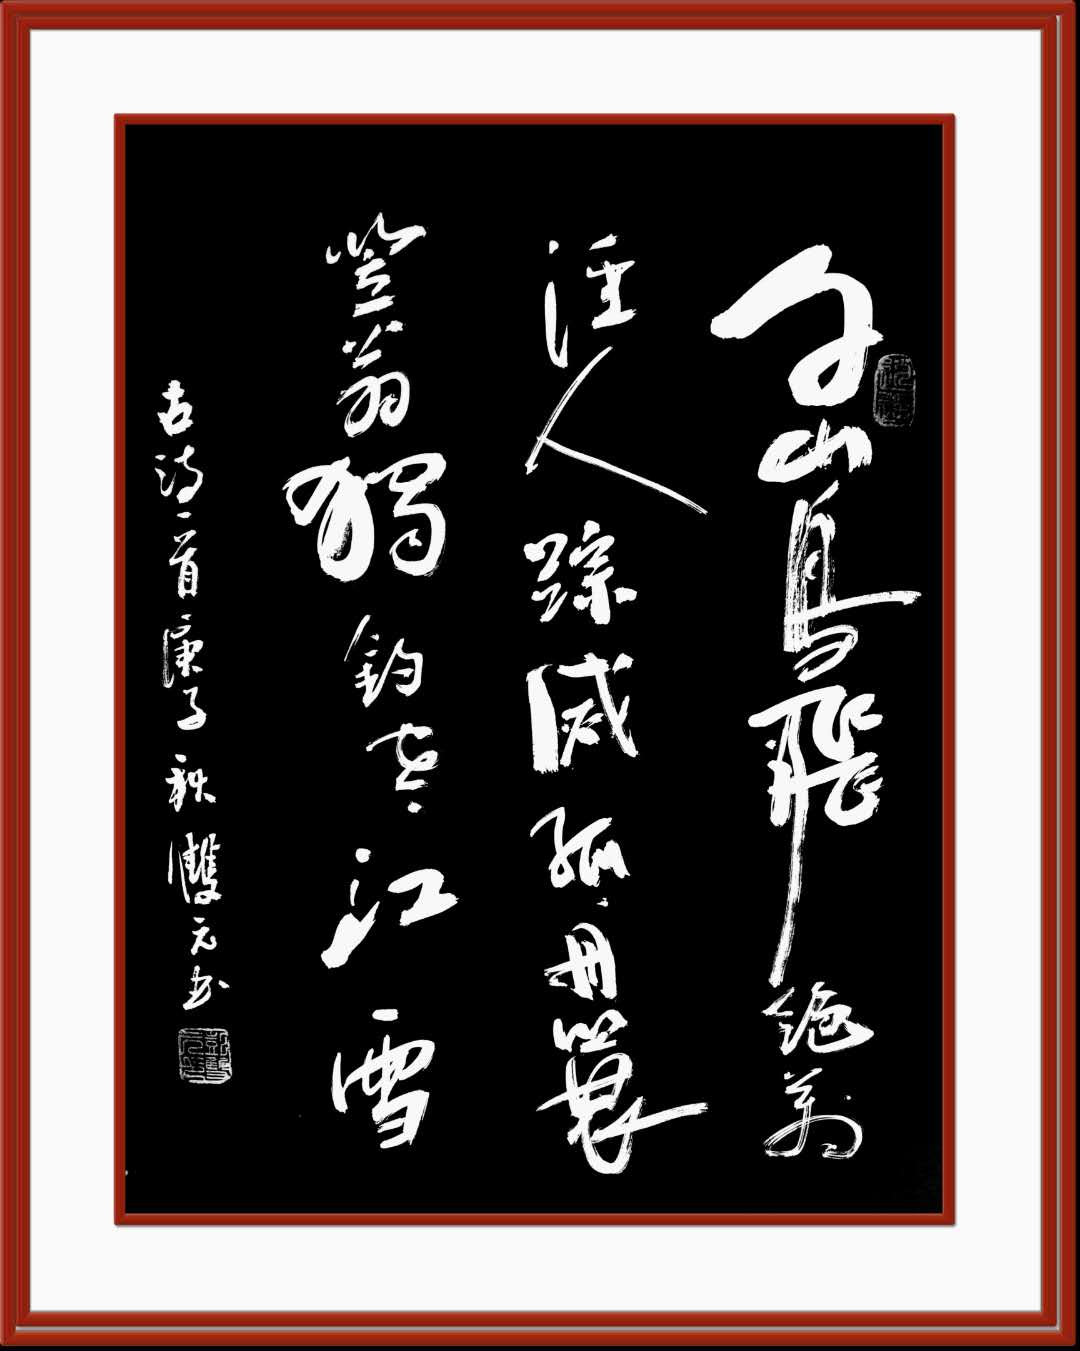 千山鳥飛絕萬
徑人踪滅孤舟蓑
笠翁獨釣寒江雪
古诗一首庚子秋雙元书